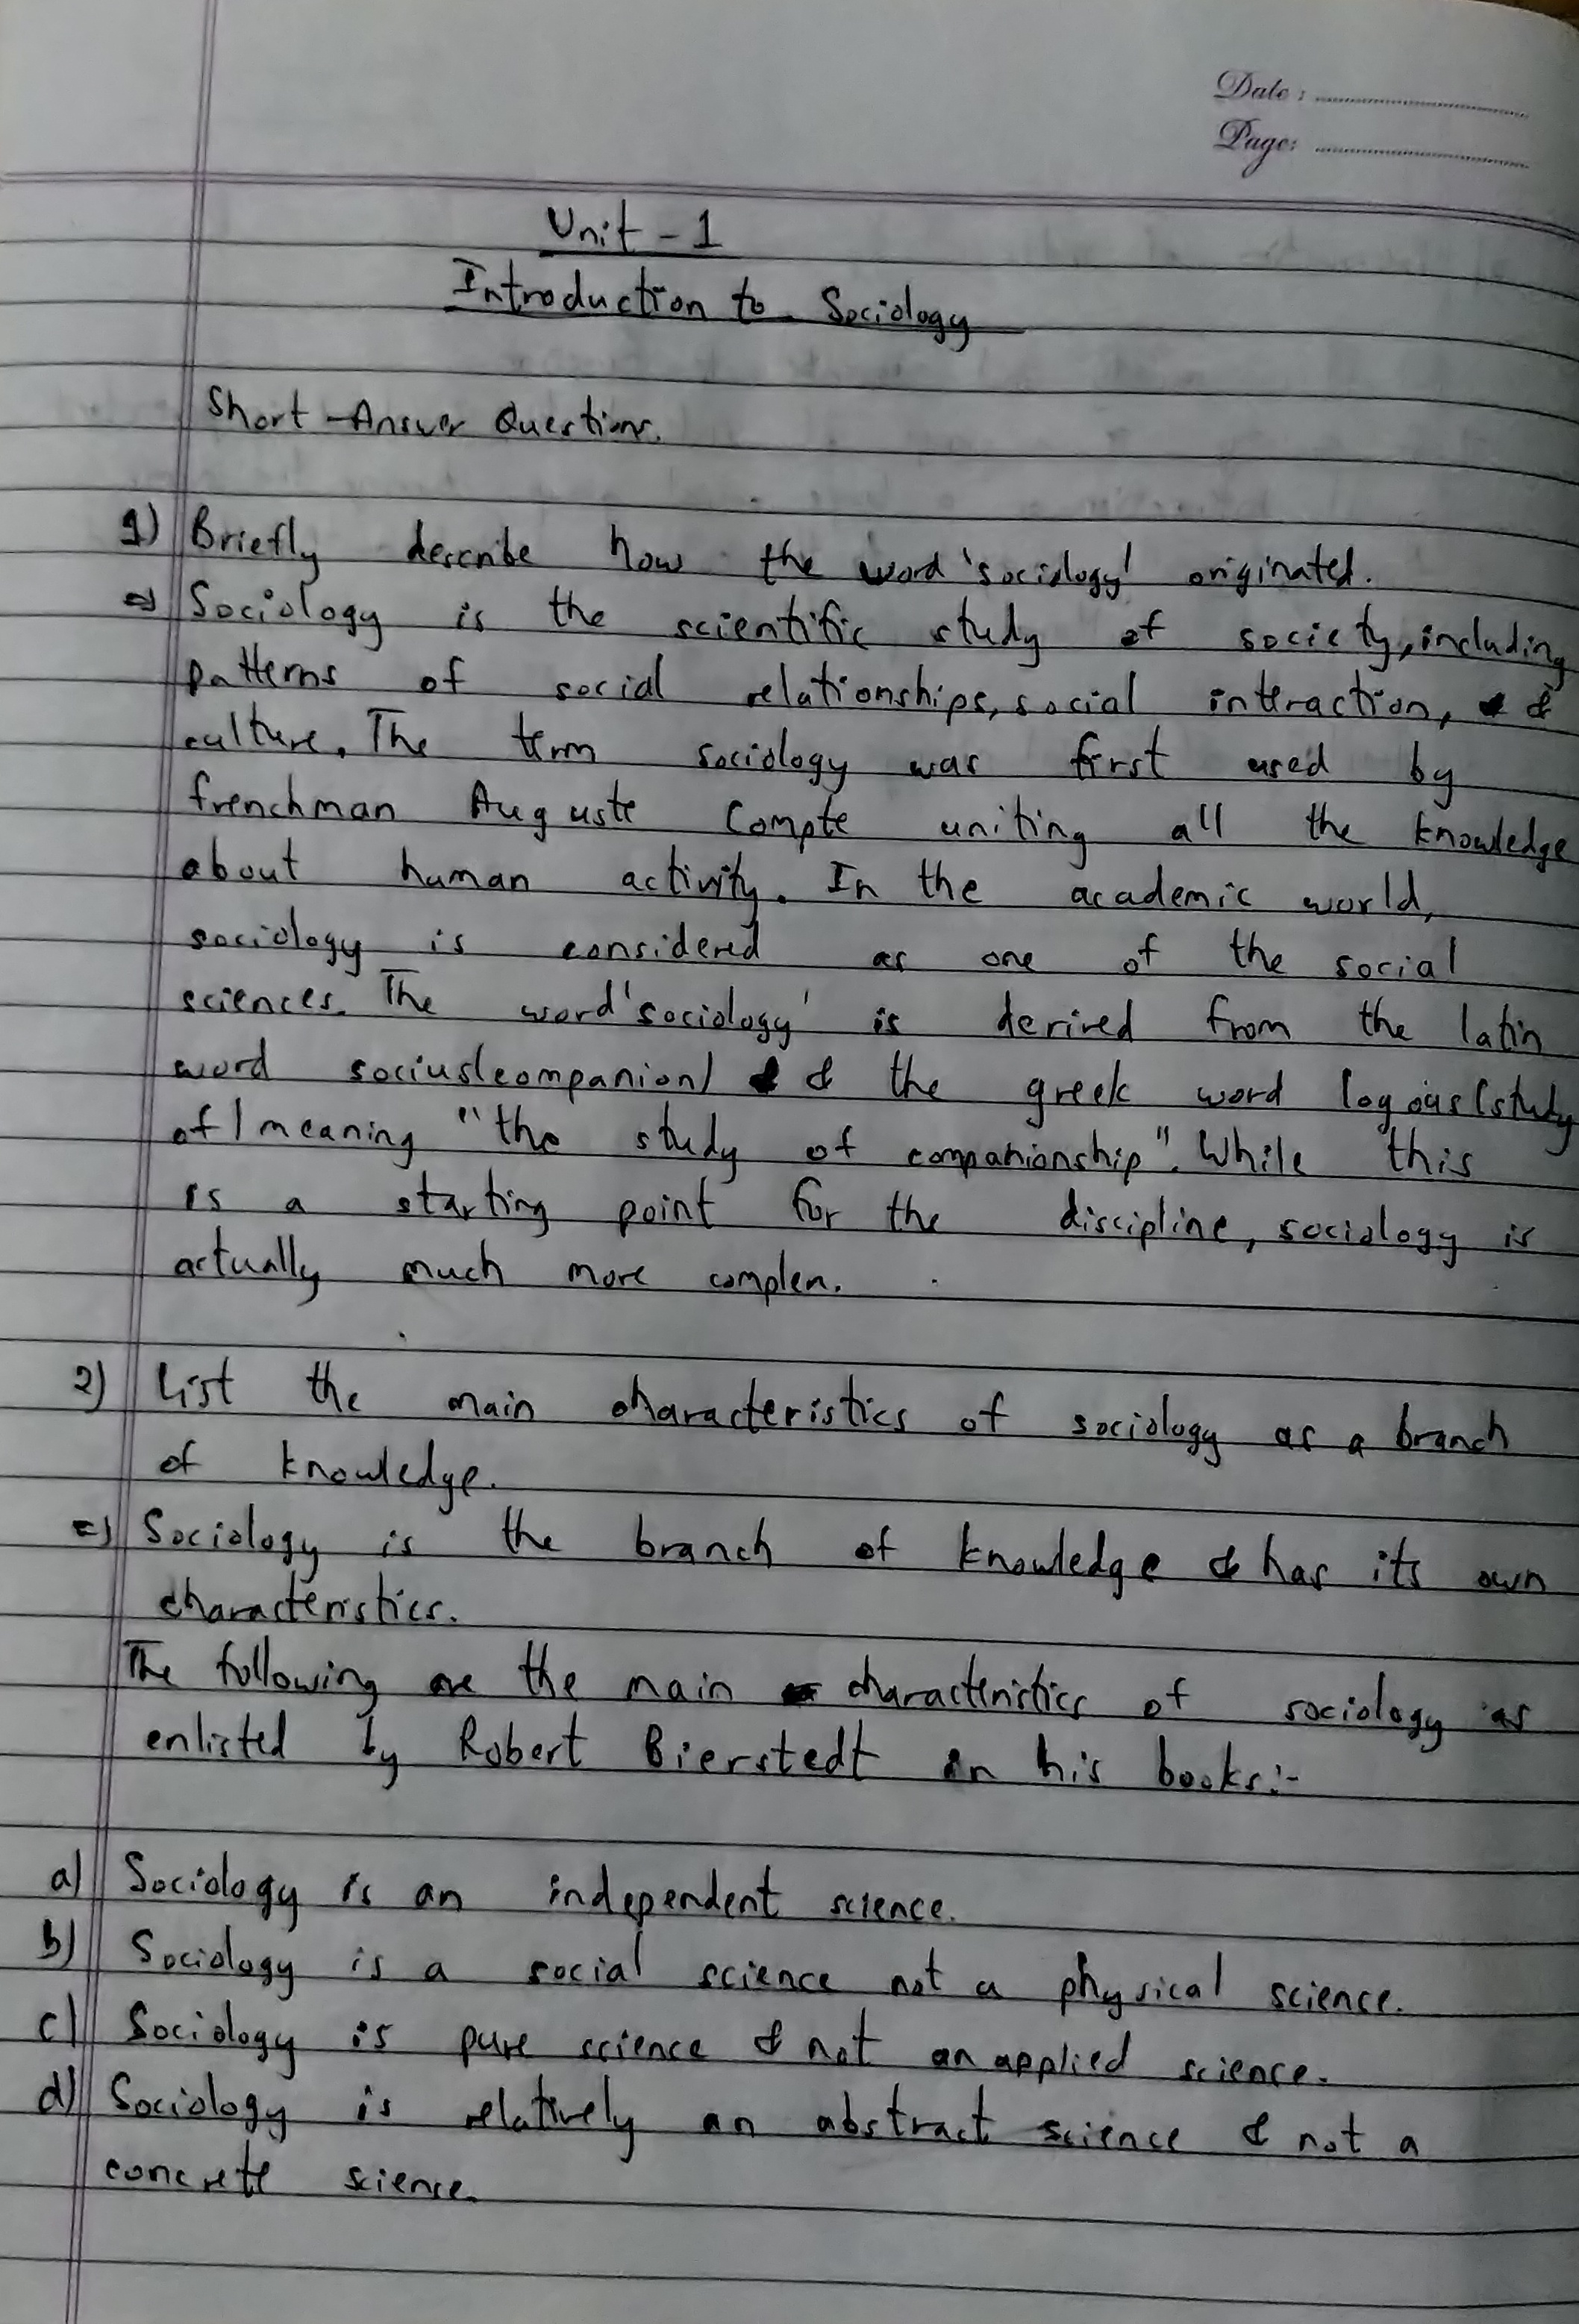 Date : ..............................
Page: ..............................
Unit - 1
Introduction to Sociology
Short -Answer Questions.
1) Briefly describe how the word 'sociology' originated.
=> Sociology is the scientific study of society, including
patterns of social relationships, social interaction, &
culture. The term sociology was first used by
frenchman Auguste Compte uniting all the knowledge
about human activity. In the academic world,
sociology is considered as one of the social
sciences. The word 'sociology' is derived from the latin
word socius(companion) & the greek word (study
of) meaning "the study of companionship". While this
is a starting point for the discipline, sociology is
actually much more complen.
2) List the main characteristics of sociology as a branch
of knowledge.
=> Sociology is the branch of knowledge & has its own
characteristics.
The following are the main characteristics of sociology as
enlisted by Robert Bierstedt in his books:-
a) Sociology is an independent science.
b) Sociology is a social science not a physical science.
c) Sociology is pure science & not an applied science.
d) Sociology is relatively an abstract science & not a
concrete science.